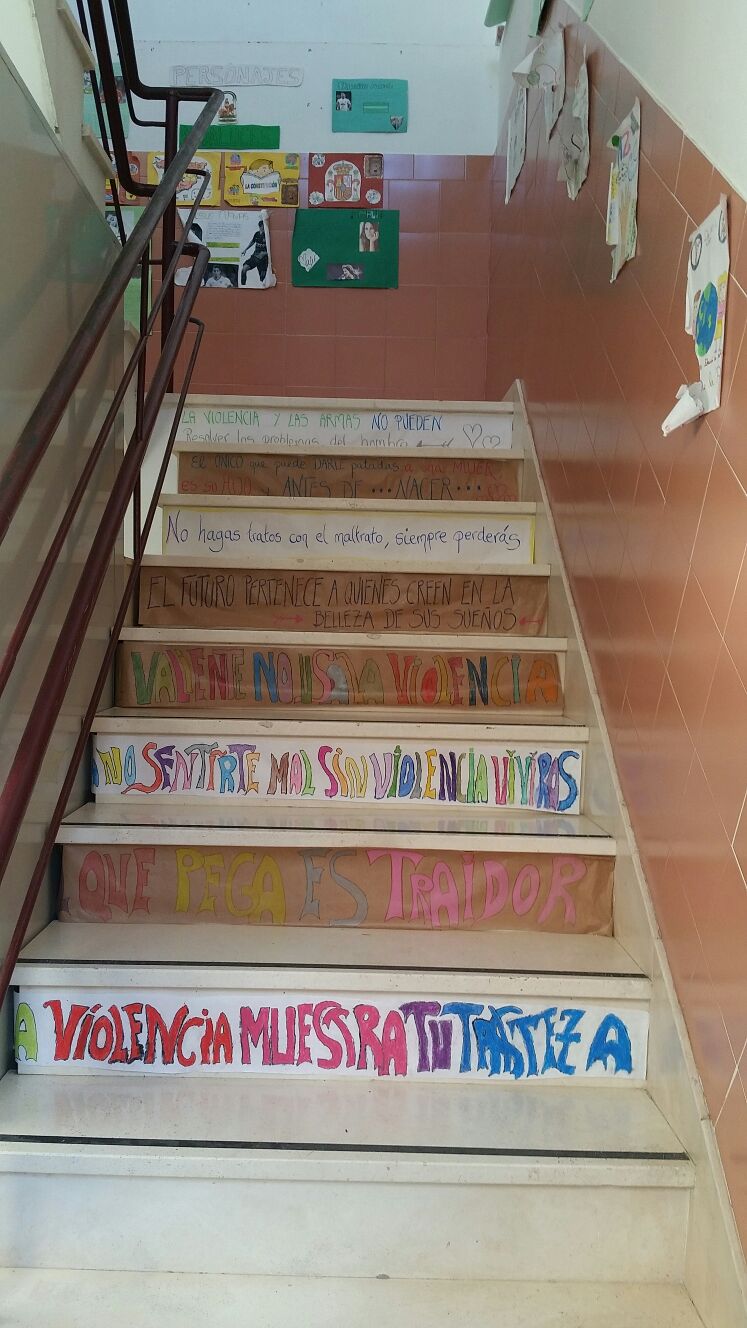 PERSONAJES
LA CONSTITUCIÓN
LA VIOLENCIA Y LAS ARMAS NO PUEDEN
Resolver los problemas del hombre
EL ÚNICO que puede DARLE patadas a una MUJER
es su HIJO, ANTES DE ... NACER ...
No hagas tratos con el maltrato, siempre perderás
EL FUTURO PERTENECE A QUIENES CREEN EN LA
BELLEZA DE SUS SUEÑOS
VALIENTE NO USA LA VIOLENCIA
NO SENTIRTE MAL SIN VIOLENCIA VIVIRÁS
QUE PEGA ES TRAIDOR
A VIOLENCIA MUESTRA TU TRISTEZA